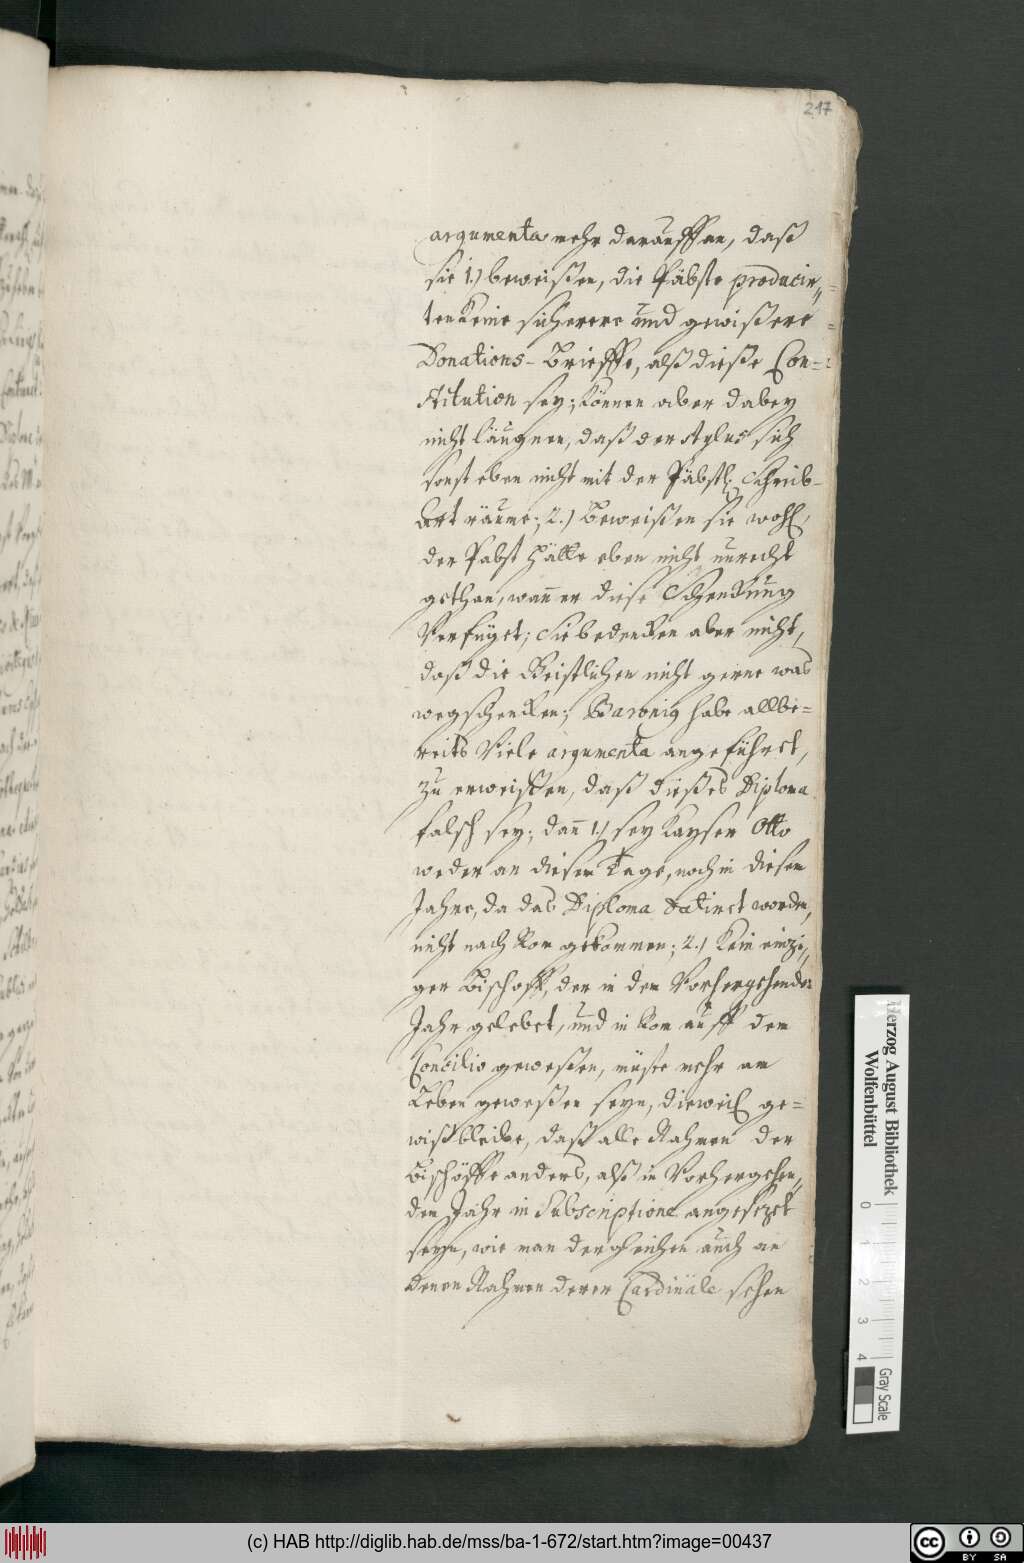 217
argumenta mehr darauff an, daß
sie 1.) beweißen, die Päbste producir„
ten keine sicherere und gewißere
Donations-Brieffe, alß dieße Con=
stitution sey; können aber dabey
nicht läugnen, daß der stylus sich
sonst eben nicht mit der Päbstl. Schreib-
Art räume; 2.) Beweißen sie wohl,
der Pabst hätte eben nicht unrecht
gethan, wañ er diese Schenckung
Verfüget; Sie bedencken aber nicht,
daß die Geistlichen nicht gerne was
wegschencken; Baronig habe allbe=
reits Viele argumenta angeführet,
zu erweißen, daß dießes Diploma
falsch sey; dañ 1.) sey Kayser Otto
weder an diesem Tage, noch in diesem
Jahre, da das Diploma datiret worden,
nicht nach Rom gekommen; 2.) Kein einzi„
ger Bischoff, der in dem Vorhergehenden
Jahr gelebet, und in Rom auff dem
Concilio geweßen, müste mehr am
Leben geweßen seyn, dieweil ge=
wiß bleibe, daß alle Nahmen der
Bischöffe anders, alß in Vorhergehen„
dem Jahr in Subscriptione angesezet
seyn, wie man dergleichen auch an
denen Nahmen derer Cardinäle sehen
Herzog August Bibliothek
Wolfenbüttel
0 1 2 3 4
Gray Scale
(c) HAB http://diglib.hab.de/mss/ba-1-672/start.htm?image=00437
cc BY SA